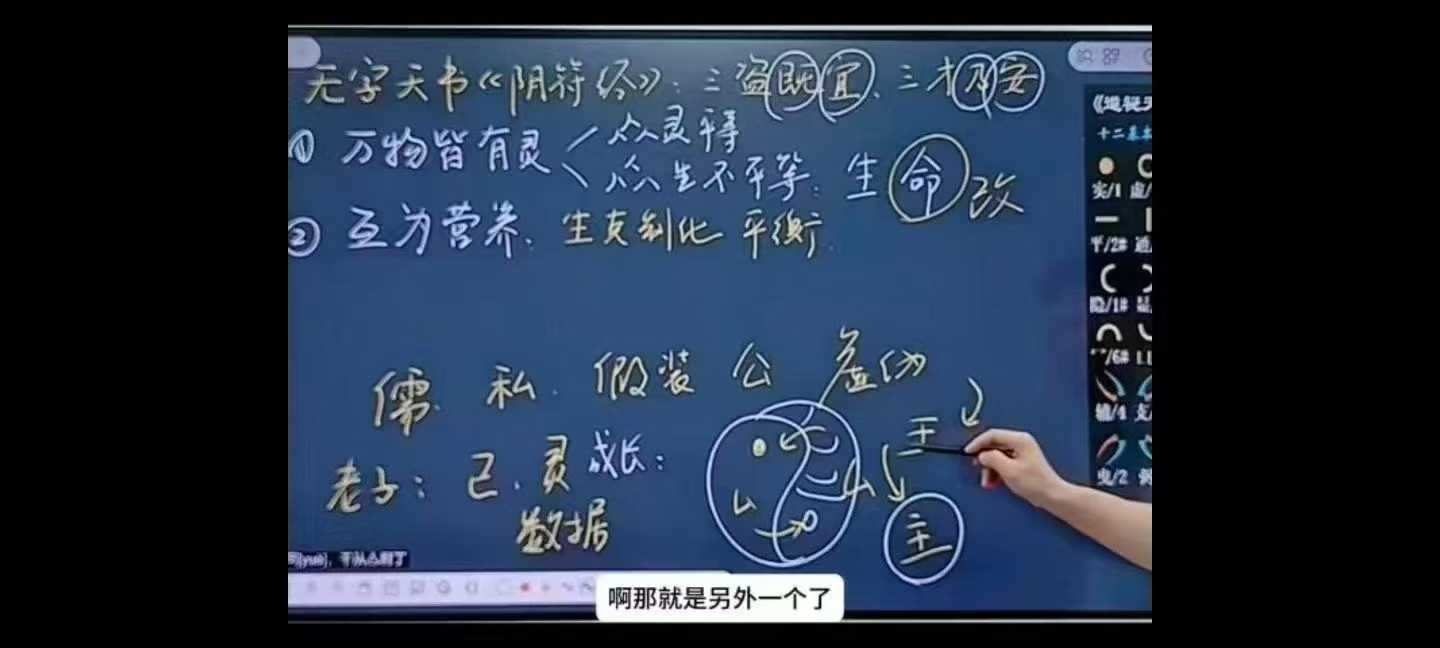 无字天书《阴符经》：三盗既宜、三才乃安
① 万物皆有灵 众灵平等
众生不平等：生命改
② 互为营养、生克制化 平衡
儒 私 假装 公 虚伪
老子：己、灵成长：
数据
王
主
十二基本
实/1 虚/
平/2# 通/
隐/1# 显/
/6#
辅/4 支/
曳/2
啊那就是另外一个了